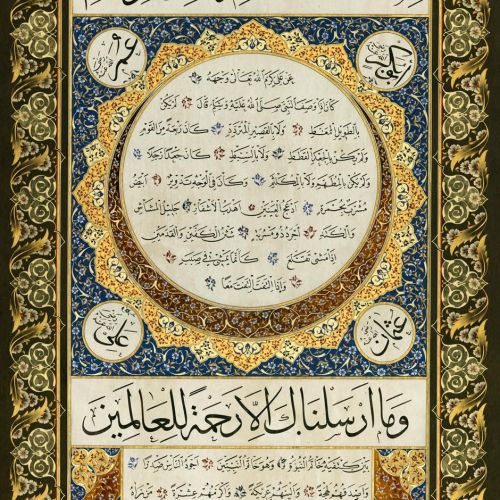 عمر
ابو بكر
عن علي كرم الله تعالى وجهه
كان اذا وصف النبي صلى الله عليه وسلم قال لم يكن
بالطويل الممغط ولا بالقصير المتردد وكان ربعة من القوم
ولم يكن بالجعد القطط ولا بالسبط كان جعدا رجلا
ولم يكن بالمطهم ولا بالمكلثم وكان في الوجه تدوير ابيض
مشرب بحمرة ادعج العينين اهدب الاشفار جليل المشاش
والكتد اجرد ذو مسربة شثن الكفين والقدمين
اذا مشى تقلع كانما يمشي في صبب
واذا التفت التفت معا
علي
عثمان
وما ارسلناك الا رحمة للعالمين
بين كتفيه خاتم النبوة وهو خاتم النبيين اجود الناس صدرا
لهجة والينهم عريكة واكرمهم عشرة من راه